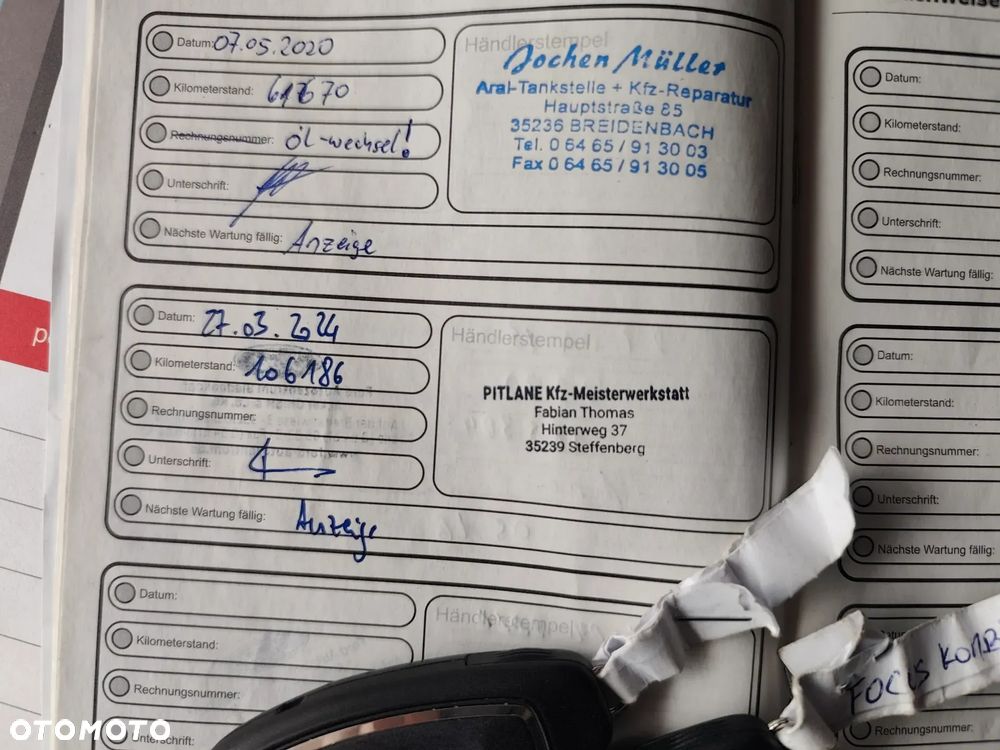 Datum: 07.05.2020
Kilometerstand: 61670
Rechnungsnummer: öl-wechsel!
Unterschrift:
Nächste Wartung fällig: Anzeige
Händlerstempel
Jochen Müller
Aral-Tankstelle + Kfz-Reparatur
Hauptstraße 85
35236 BREIDENBACH
Tel. 0 64 65 / 91 30 03
Fax 0 64 65 / 91 30 05
Datum: 27.03.2024
Kilometerstand: 106186
Rechnungsnummer:
Unterschrift:
Nächste Wartung fällig: Anzeige
Händlerstempel
PITLANE Kfz-Meisterwerkstatt
Fabian Thomas
Hinterweg 37
35239 Steffenberg
Datum:
Kilometerstand:
Rechnungsnummer:
Unterschrift:
Händlerstempel
Datum:
Kilometerstand:
Rechnungsnummer:
Unterschrift:
Nächste Wartung fällig:
Datum:
Kilometerstand:
Rechnungsnummer:
Unterschrift:
Nächste Wartung fällig:
Rechnungsnummer:
FOCUS
OTOMOTO